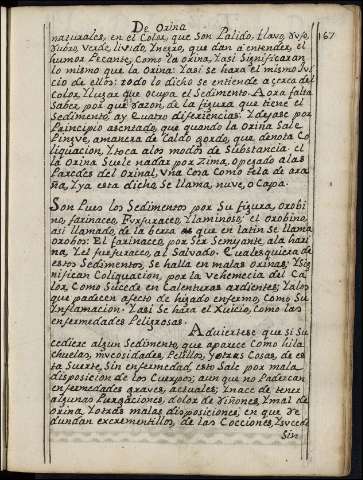 De Orina
167
naturales, en el Color, que son Palido, flavo, rufo,
rubro, verde, livido, y nero, que dan a entender, el
humor Pecante, Como la orina, y asi significaran
lo mismo que la Orina: y asi se hara el mismo Jui
cio de ellos: todo lo dicho se entiende acerca del
Color, y lugar que ocupa el Sedimento. Aora falta
saber por què razon, de la figura que tiene el
Sedimento, ay Cuatro diferiencias: y dejase por
Principio asentado, que quando la Orina Sale
Pingve, amanera de Caldo gordo, que denota Co
liquiacion, y toca alos modos de Substancia el
la Orina suele nadar por Zima, o pegado alas
Paredes del Orinal, una Cosa Como tela de ara
ña, y ya esta dicho, Se llama, nuve, o Capa.
Son Pues los Sedimentos por Su figura, orobi
no, farinaceo, furfuraceo, y laminoso: el orobino,
asi llamado, de la berza que en latin se llama
orobos: El farinaceo, por Ser Semejante, ala hari
na, y el furfuraceo, al Salvado. Cualesquiera de
estos Sedimentos, Se halla en malas orinas; y Sig
nifican Coliquacion, por la vehemecia del Ca
lor, Como Sucede en Calenturas ardientes; y a los
que padecen afecto de higado enfermo, Como Su
Inflamacion. y asi Se hara el Juicio, Como las
enfermedades Peligrosas.
Aduiertese que si Su
cediere algun Sedimento, que aparece Como hila
chuelas, mucosidades, Pelillos, y otras Cosas, de es
ta Suerte, Sin enfermedad, esto Sale por mala
disposicion de los Cuerpos, aun que no Padezcan
enfermedades graves, actuales; y nace de tener
algunas Purgaciones, dolor de riñones, y mal de
orina, y otras malas disposiciones, en que re
dundan excrementillos, de las Cocciones, y sucede
Sin